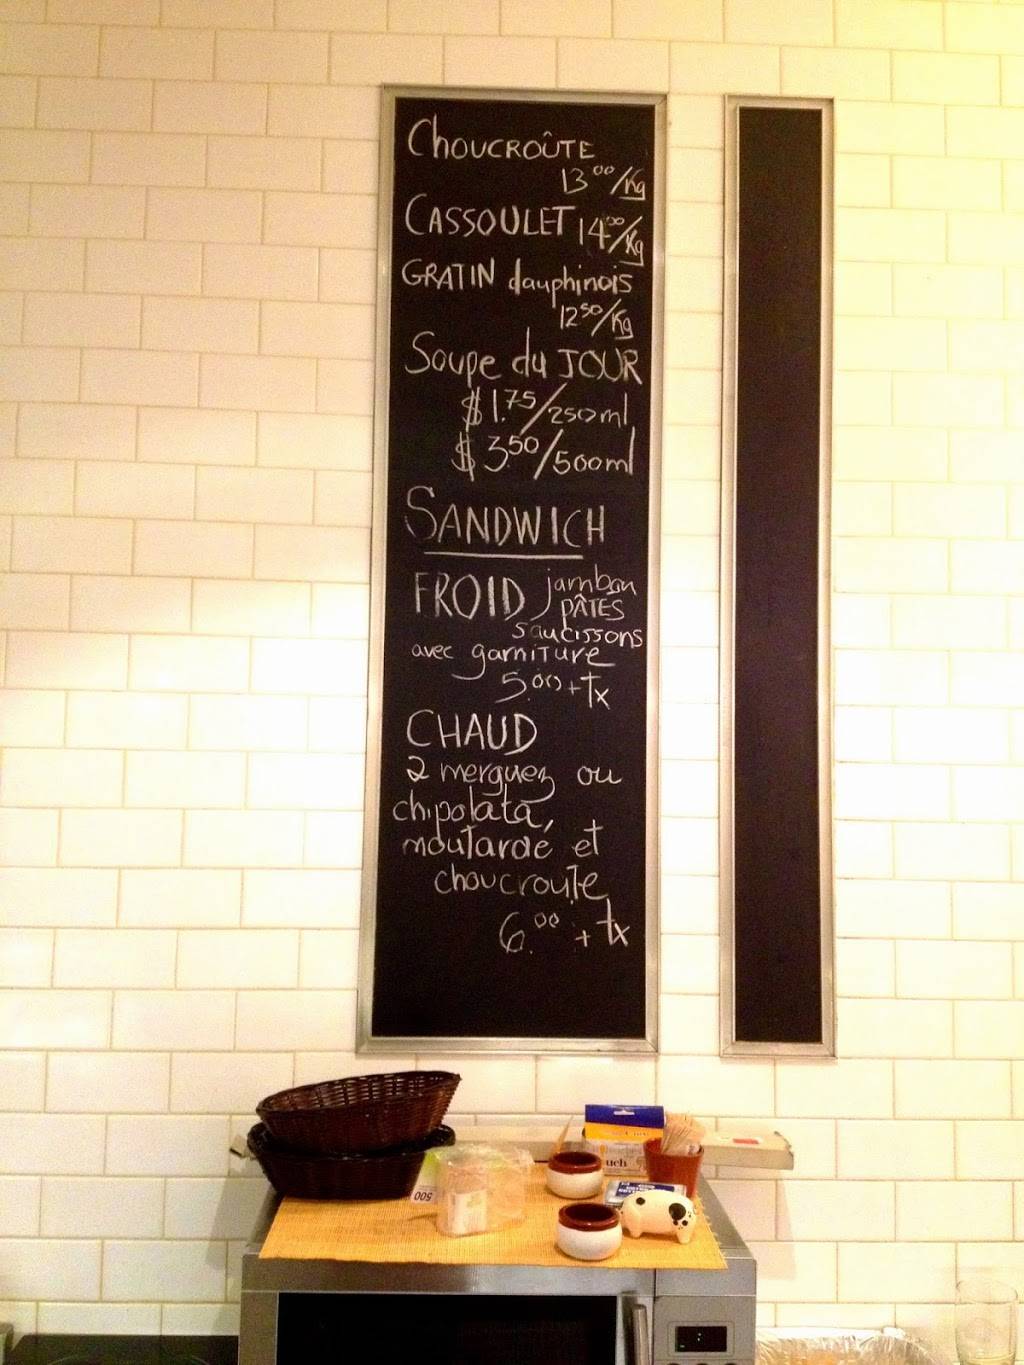 Choucroûte
13.00/Kg
CASSOULET 14.00/Kg
GRATIN dauphinois
12.50/Kg
Soupe du JOUR
$1.75/250ml
$3.50/500ml
SANDWICH
FROID jambon
PÂTES
saucissons
avec garniture
5.00 + tx
CHAUD
2 merguez ou
chipolata,
moutarde et
choucroute
6.00 + tx
500
uch